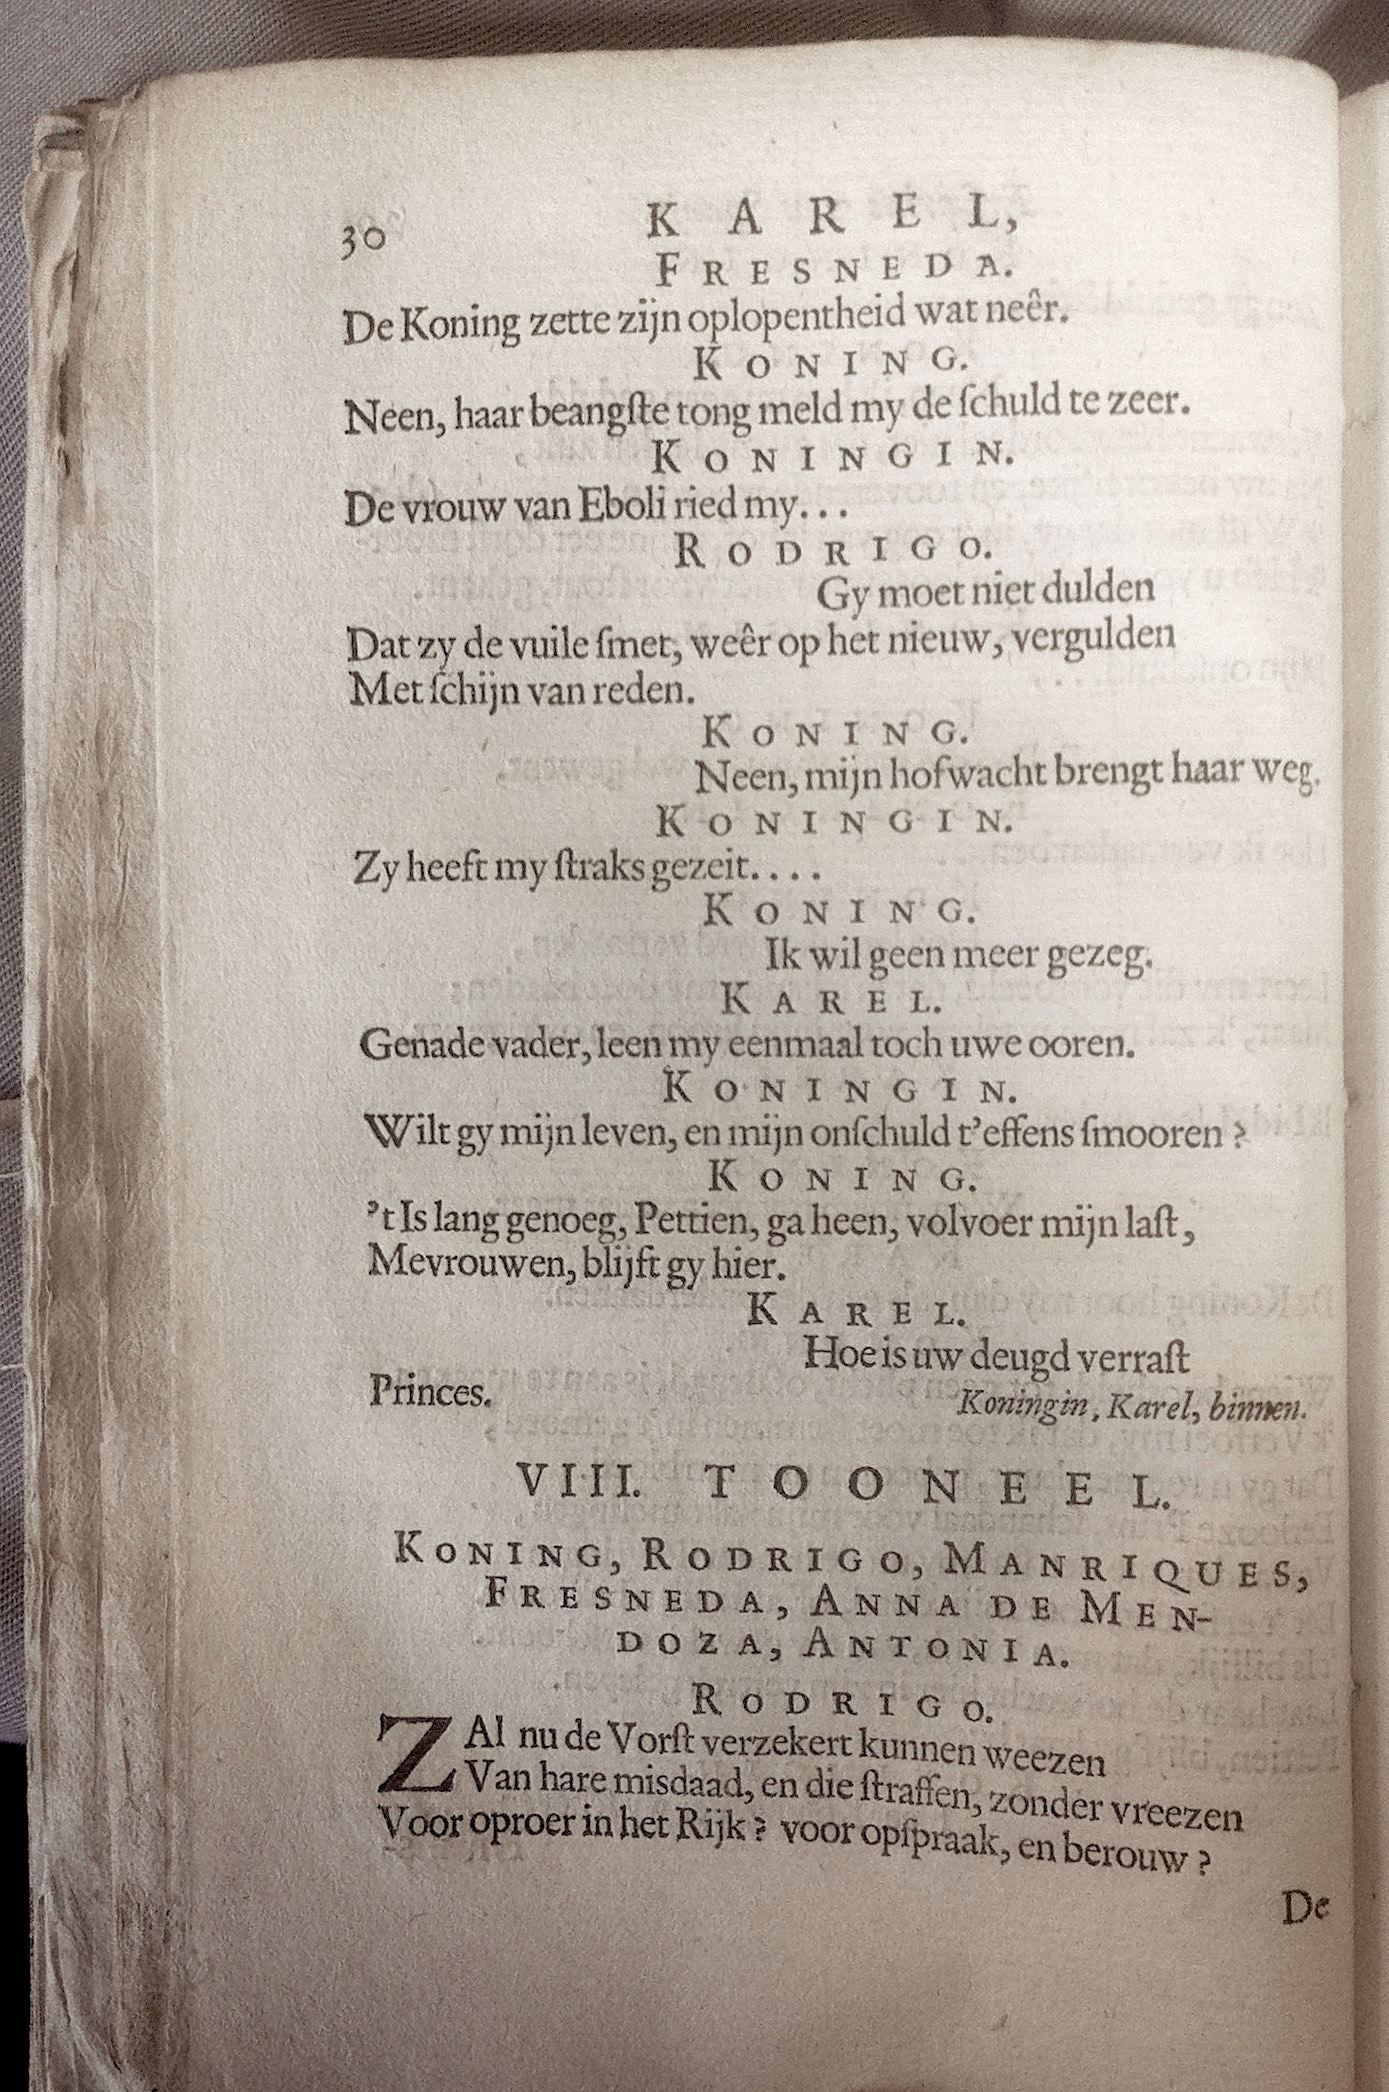 30 KAREL,
FRESNEDA.
De Koning zette zijn oplopentheid wat neêr.
KONING.
Neen, haar beangſte tong meld my de ſchuld te zeer.
KONINGIN.
De vrouw van Eboli ried my...
RODRIGO.
Gy moet niet dulden
Dat zy de vuile ſmet, weêr op het nieuw, vergulden
Met ſchijn van reden.
KONING.
Neen, mijn hofwacht brengt haar weg.
KONINGIN.
Zy heeft my ſtraks gezeit....
KONING.
Ik wil geen meer gezeg.
KAREL.
Genade vader, leen my eenmaal toch uwe ooren.
KONINGIN.
Wilt gy mijn leven, en mijn onſchuld t'effens ſmooren?
KONING.
't Is lang genoeg, Pettien, ga heen, volvoer mijn laſt,
Mevrouwen, blijft gy hier.
KAREL.
Hoe is uw deugd verraſt
Princes. Koningin, Karel, binnen.
VIII. TOONEEL.
KONING, RODRIGO, MANRIQUES,
FRESNEDA, ANNA DE MEN-
DOZA, ANTONIA.
RODRIGO.
ZAl nu de Vorſt verzekert kunnen weezen
Van hare misdaad, en die ſtraffen, zonder vreezen
Voor oproer in het Rijk? voor opſpraak, en berouw?
De